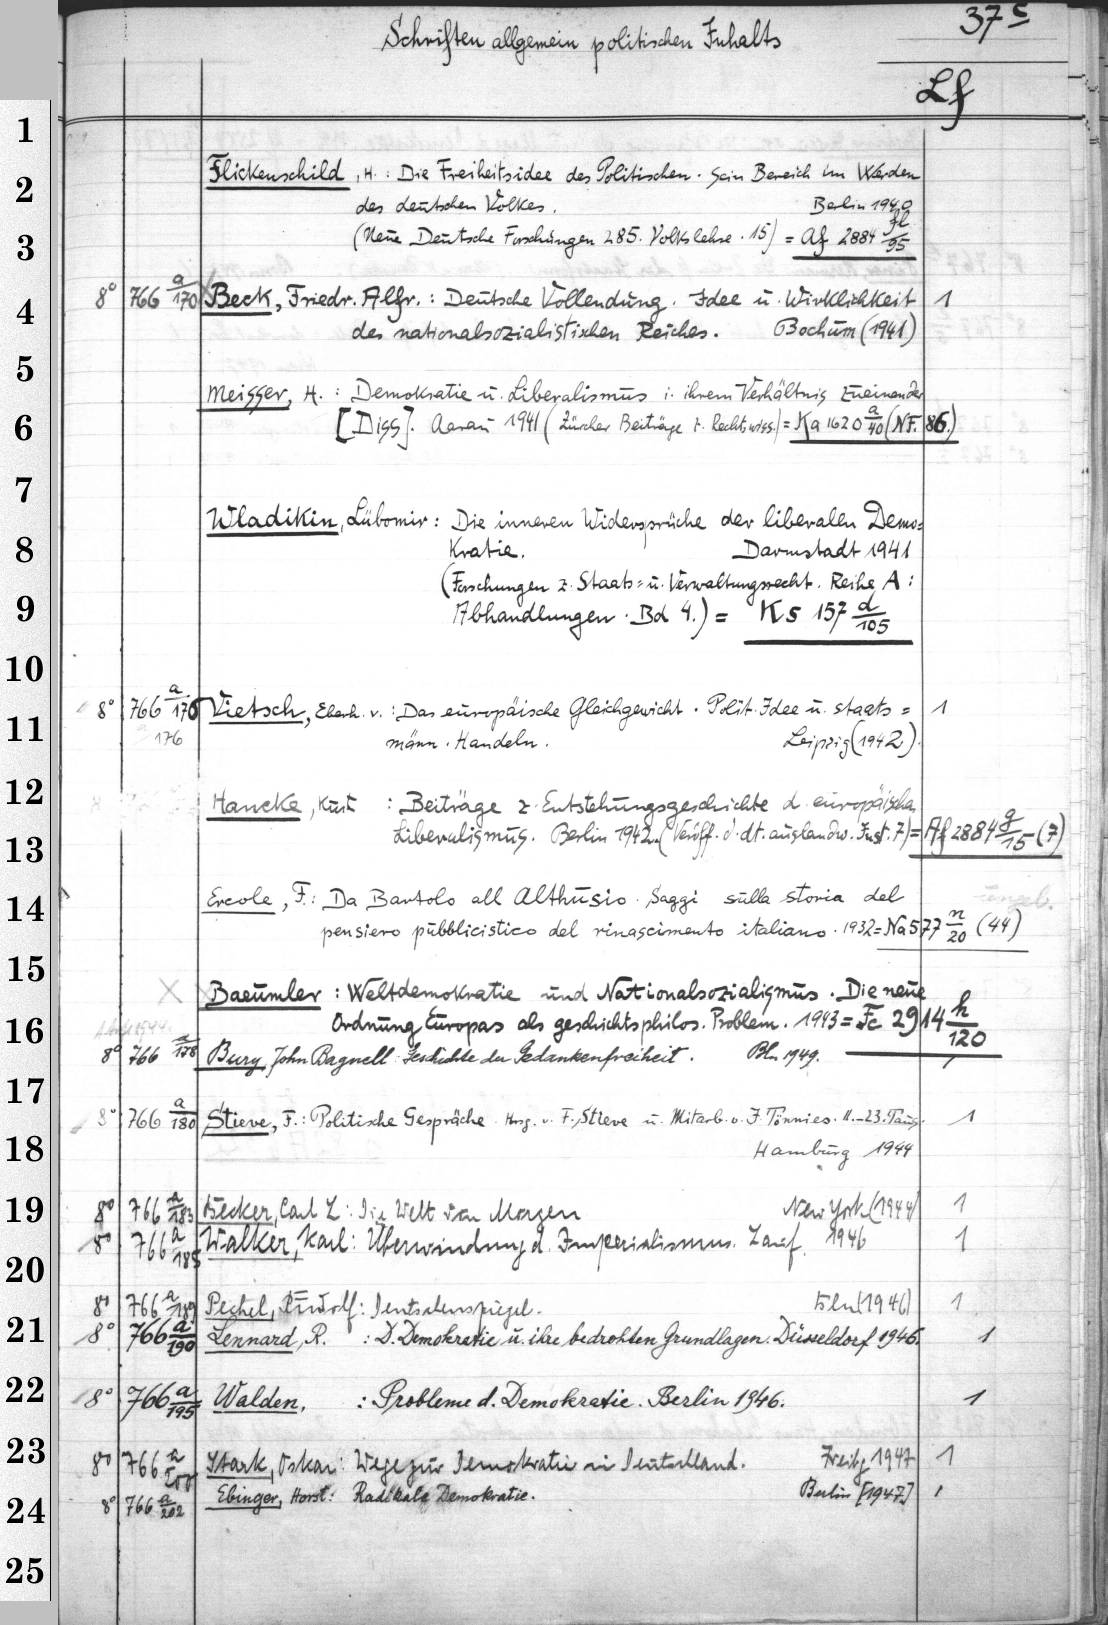 375
Schriften allgemein politischen Inhalts
Lf
1
2
3
4
5
6
7
8
9
10
11
12
13
14
15
16
17
18
19
20
21
22
23
24
25
Flickenschild, H. : Die Freiheitsidee des Politischen. Sein Bereich im Werden
des deutschen Volkes. Berlin 1940
(Neue Deutsche Forschungen 285. Volkslehre. 15) = Af 2884 fl/95
8° 766 a/170 Beck, Friedr. Alfr. : Deutsche Vollendung. Idee u. Wirklichkeit 1
des nationalsozialistischen Reiches. Bochum (1941)
Meisser, H. : Demokratie u. Liberalismus i. ihrem Verhältnis zueinander
[Diss]. Aarau 1941 (Zürcher Beiträge z. Rechtswiss.) = Ka 1620 a/40 (NF. 86.)
Wladikin, Lübomir : Die inneren Widersprüche der liberalen Demo=
kratie. Darmstadt 1941
(Forschungen z. Staats= u. Verwaltungsrecht. Reihe A :
Abhandlungen. Bd 4.) = Ks 157 d/105
8° 766 a/176 Vietsch, Eberh. v. : Das europäische Gleichgewicht. Polit. Idee u. staats = 1
176 männ. Handeln. Leipzig (1942).
Hancke, Kurt : Beiträge z. Entstehungsgeschichte d. europäische
Liberalismus. Berlin 1942. (Veröff. d. dt. auslandw. Inst. 7) = Af 2884 g/15 (7)
Ercole, F. : Da Bartolo all Althusio. Saggi sulla storia del ungeb.
pensiero pubblicistico del rinascimento italiano. 1932 = Na 577 n/20 (44)
X Baeumler : Weltdemokratie und Nationalsozialismus. Die neue
Ordnung Europas als geschichtsphilos. Problem. 1943 = Fc 2914 h/120
8° 766 a/178 Bury, John Bagnell : Geschichte der Gedankenfreiheit. Bln 1949. 1
8° 766 a/180 Stieve, F. : Politische Gespräche. Hrsg. v. F. Stieve u. Mitarb. v. J. Tönnies. 11.-23. Taus. 1
Hamburg 1944
8° 766 a/183 Becker, Carl L : Die Welt von Morgen New York (1944) 1
8° 766 a/185 Walker, Karl : Überwindung d. Imperialismus. 1946 1
8° 766 a/189 Pechel, Rudolf : Deutschenspiegel. Bln (1946) 1
8° 766 a/190 Lennard, R. : D. Demokratie u. ihre bedrohten Grundlagen. Düsseldorf 1946. 1
8° 766 a/195 Walden, : Probleme d. Demokratie. Berlin 1946. 1
8° 766 a/200 Stark, Oskar : Wege zur Demokratie in Deutschland. Freibg 1947 1
8° 766 a/202 Ebinger, Horst : Radikale Demokratie. Berlin [1947] 1